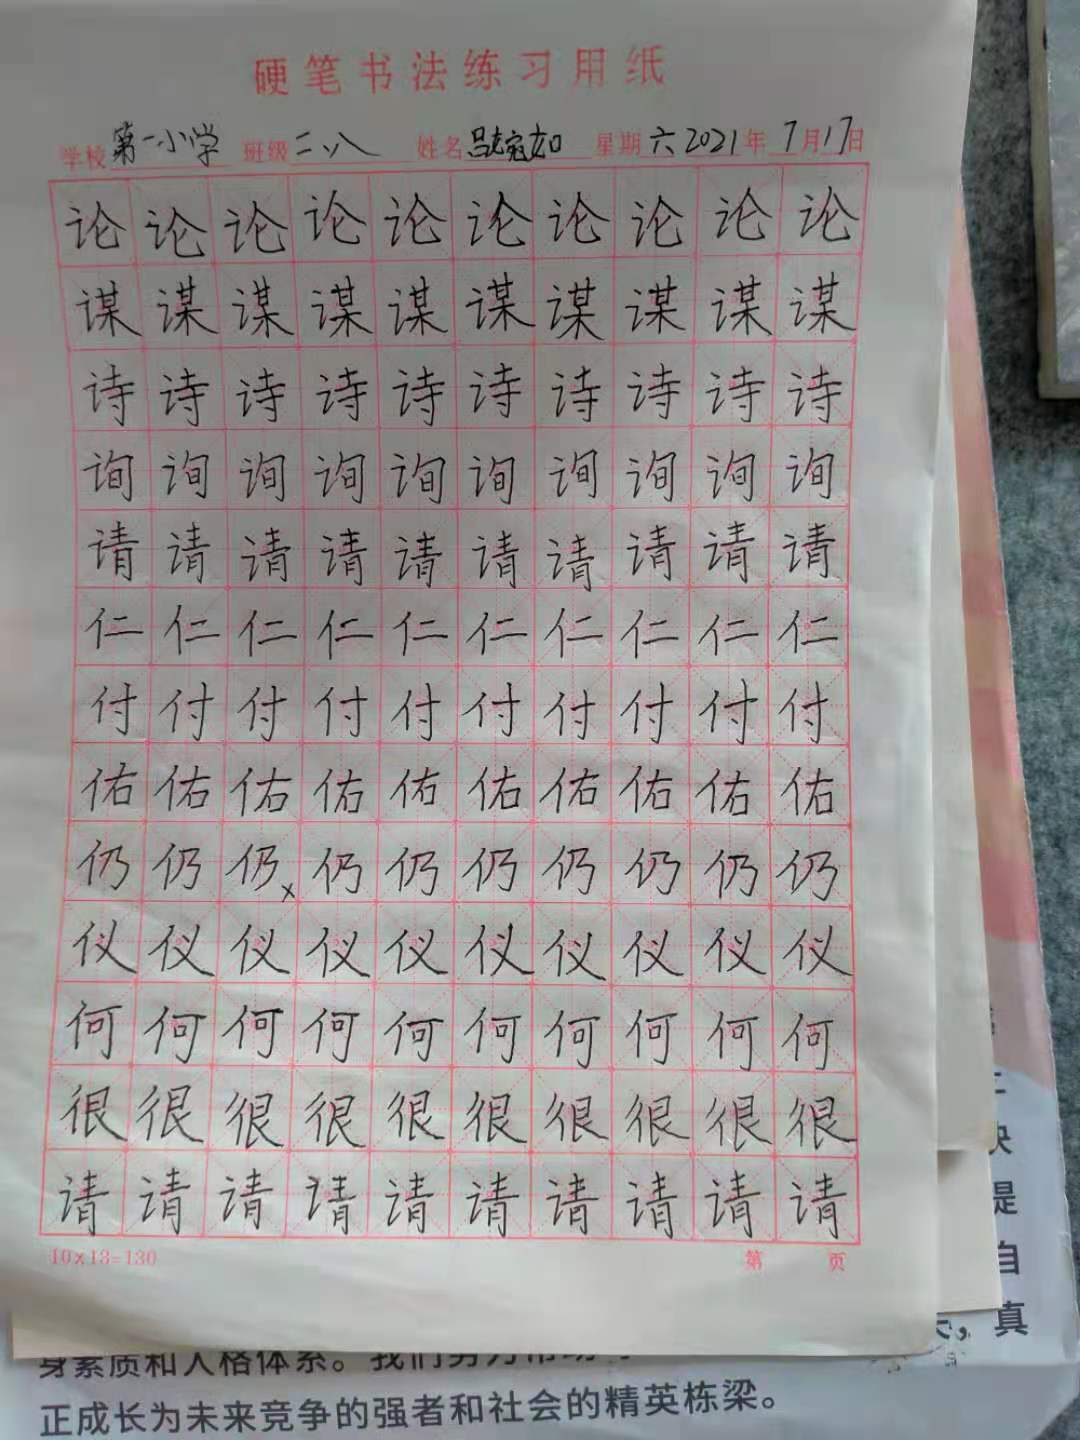 硬笔书法练习用纸
学校 第一小学 班级 二、八 姓名 星期 六 2021 年 7 月 17 日
论论论论论论论论论论
谋谋谋谋谋谋谋谋谋谋
诗诗诗诗诗诗诗诗诗诗
询询询询询询询询询询
请请请请请请请请请请
仁仁仁仁仁仁仁仁仁仁
付付付付付付付付付付
佑佑佑佑佑佑佑佑佑佑
仍仍仍x仍仍仍仍仍仍仍
仪仪仪仪仪仪仪仪仪仪
何何何何何何何何何何
很很很很很很很很很很
请请请请请请请请请请
10×13=130 第 页
提
自
真
身素质和人格体系。我们努力帮助
正成长为未来竞争的强者和社会的精英栋梁。